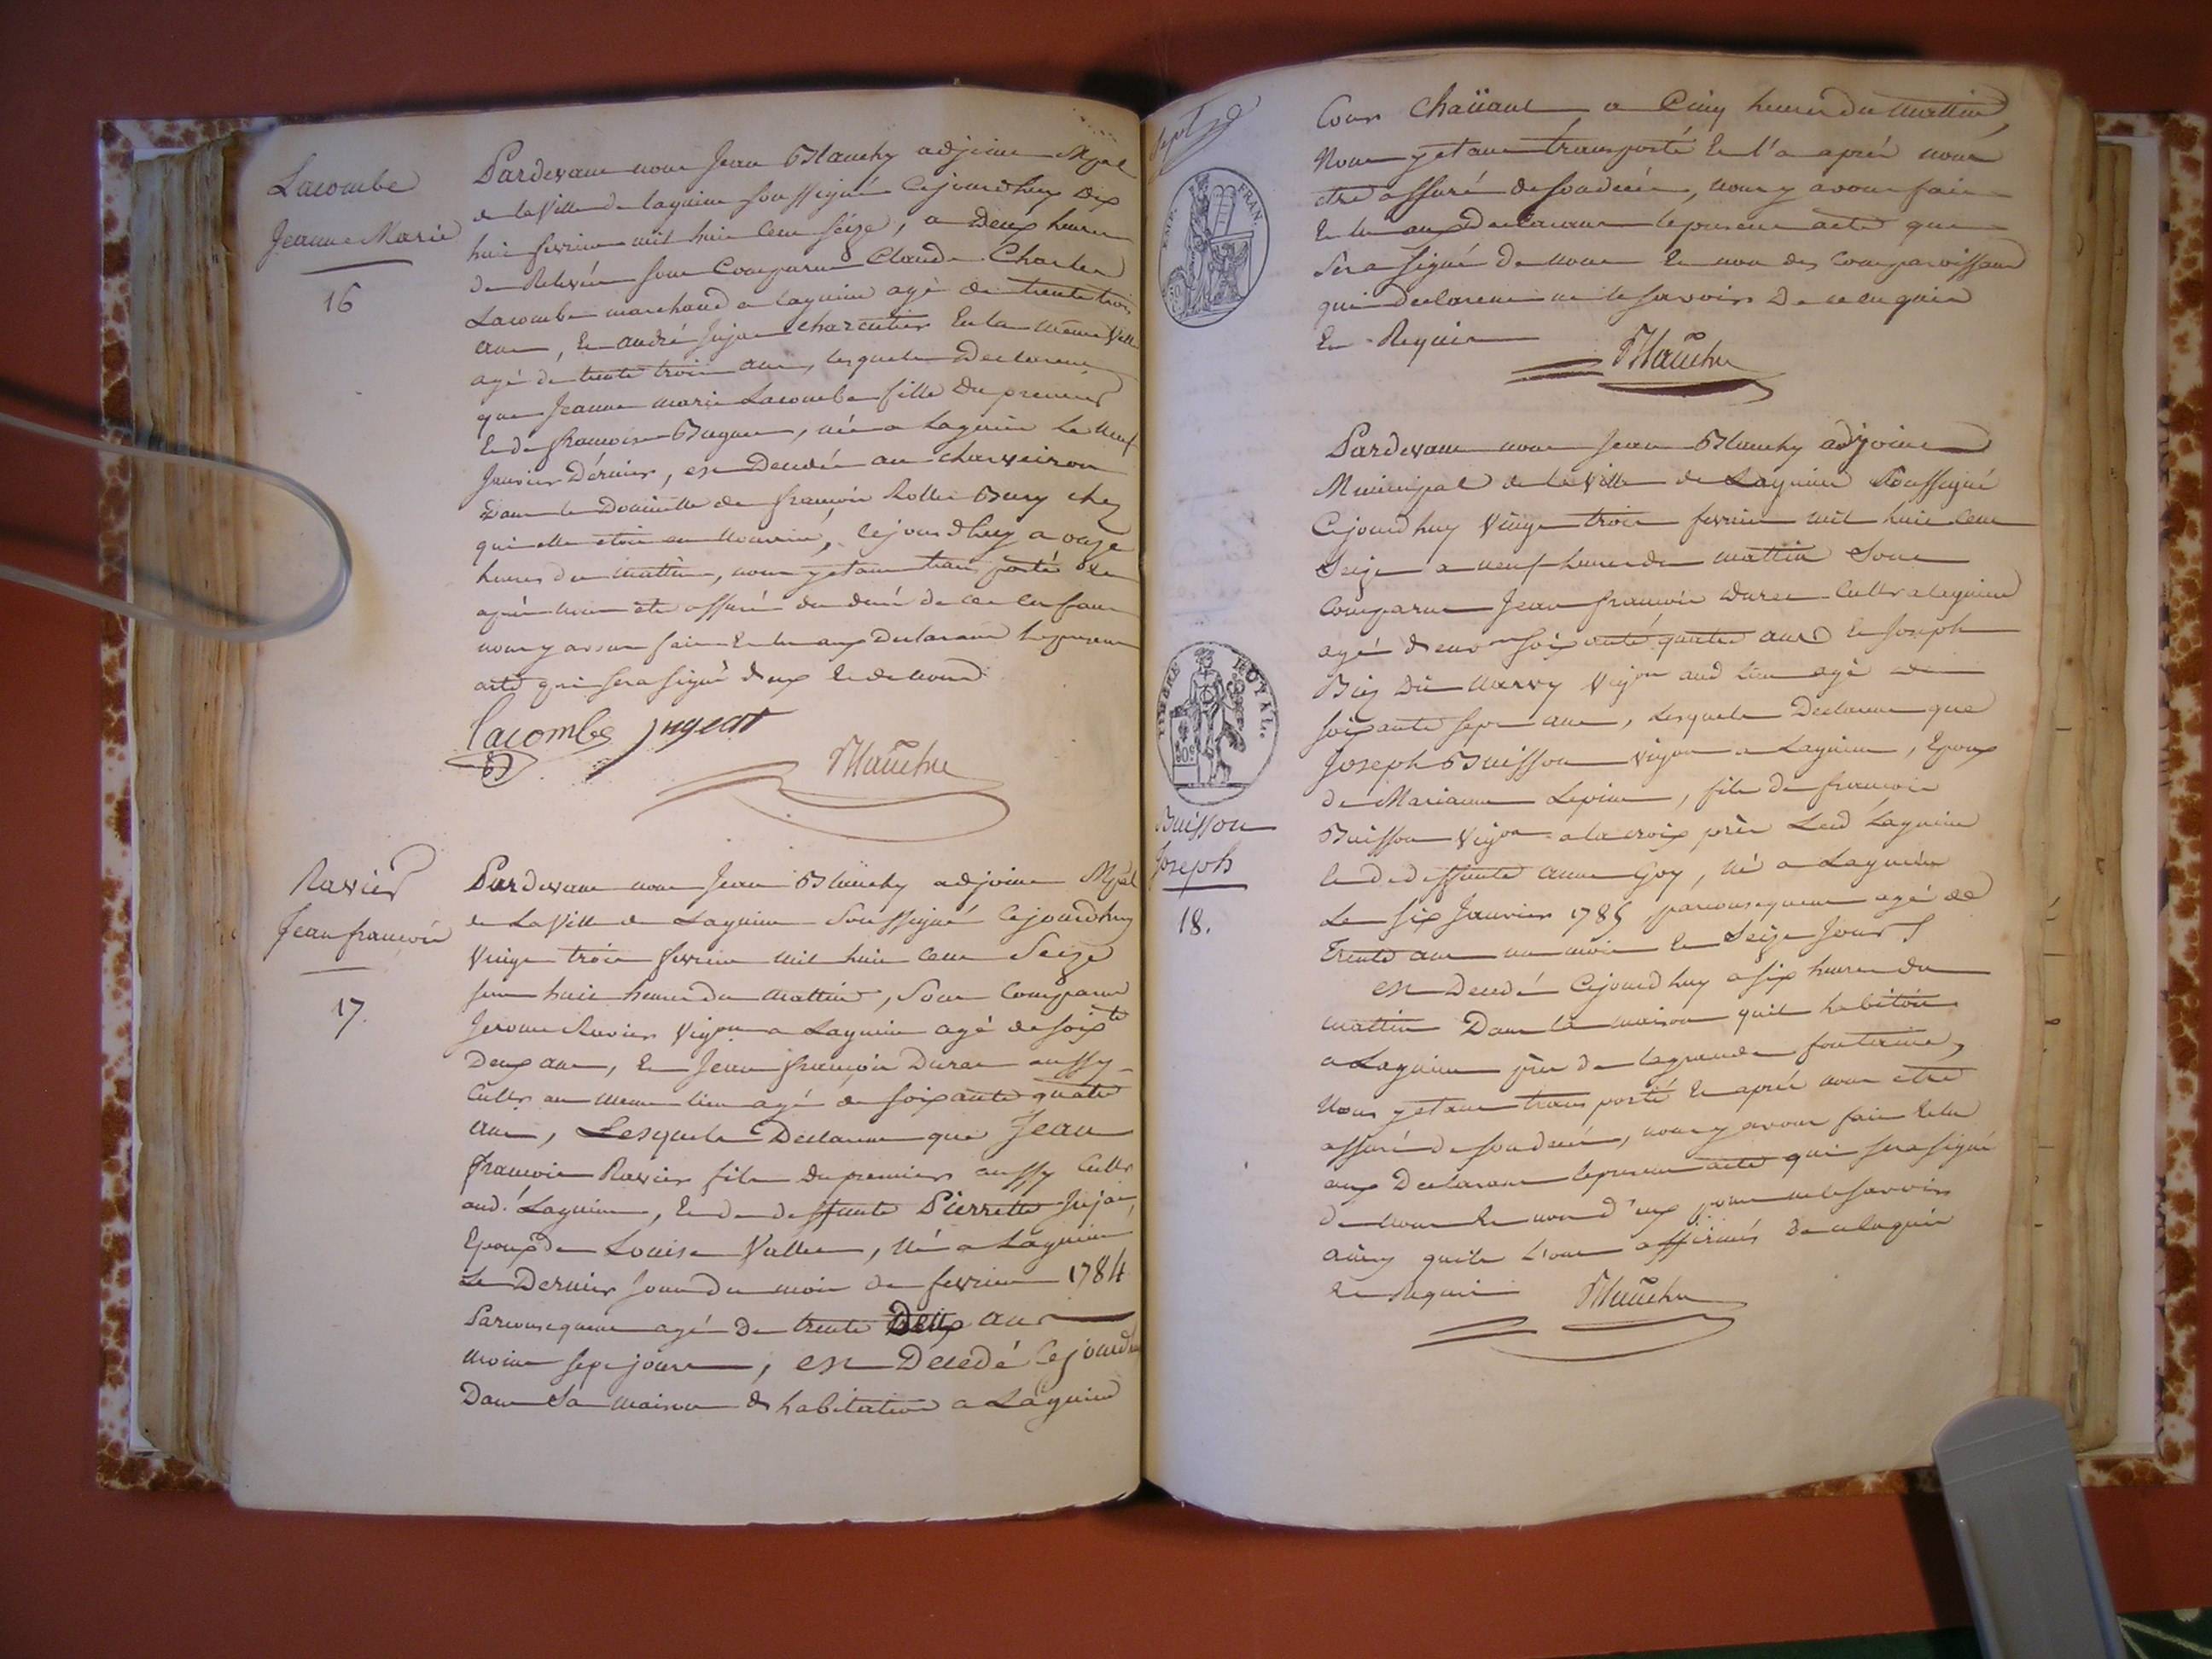 Lacombe
Jeanne Marie
16
Pardevant nous Jean Blanchy adjoint Mpal
de la Ville de lagnieu soussigné Cejourdhuy Dix
huit fevrier mil huit Cent séize, a Deux heures
de Relevée sont Comparus Claude Charles
Lacombe marchand a lagnieu agé de trente trois
ans, Et andré Jujat charcutier En la même Ville
agé de trente trois ans, lesquels Declarent
que Jeanne marie Lacombe fille Du premier
Et de francoise Bugnet, née a Lagnieu Le neuf
Janvier Dérnier, est Decedée au charveiron
Dans le Domicille de francois Rollet chez
qui elle etoit en nourrice, cejourdhuy a onze
heures du mattin, nous y etant transporté Et
après nous être assuré du decé de cet Enfant
nous y avons fait Et lu aux Declarants le present
acte qui sera signé d'eux Et de nous
Lacombe Jugeat
Blanchy
Ravier
Jean francois
17.
Pardevant nous Jean Blanchy adjoint Mpal
de La Ville de Lagnieu Soussigné Cejourdhuy
Vingt trois fevrier mil huit Cent Seize
sur huit heures du mattin, Sont Comparus
Jerome Ravier Vigon a Lagnieu agé de soixte
Deux ans, Et Jean francois Duret aussy
Cultr au meme lieu agé de soixante quatre
ans, Lesquels Declarent que Jean
francois Ravier fils du premier aussy Cultr
aud. Lagnieu, Et de deffunte Pierrette Jujat,
Epoux de Louise Vallet, né a Lagnieu
Le Dernier Jour du mois de fevrier 1784
Parconsequent agé De trente Deux ans
moins sept jours, est Décedé Cejourdhuy
Dans Sa maison d'habitation a Lagnieu
Sept
EMP. FRAN.
Cour a Cinq heures du mattin,
Nous y etant transporté Et l'a après nous
etre assuré de son decés, nous y avons fait
Et lu aux Declarants le present acte qui
sera signé De nous Et non des Comparoissants
qui declarent ne le savoir De ce Enquis
Et Requis
Blanchy
TIMBRE ROYAL.
50c
Buisson
Joseph
18.
Pardevant nous Jean Blanchy adjoint
Municipal de la Ville de Lagnieu Soussigné
Cejourdhuy Vingt trois fevrier mil huit Cent
Seize a neuf heures du mattin Sont
Comparus Jean francois Duret Cultr a lagnieu
agé d'env soixante quatre ans Et Joseph
Dit Vigon aud lieu agé de
soixante sept ans, Lesquels Declarent que
Joseph Buisson vigon a Lagnieu, Epoux
de Marianne Lepine, fils de francois
Buisson Vigon a la croix près Led Lagnieu
Et de deffunte anne Goy, né a Lagnieu
Le six Janvier 1785, parconsequent agé de
Trente ans un mois Et Seize Jours
est Decedé Cejourdhuy a six heures du
mattin Dans la maison quil habitoit
a Lagnieu près de la grande fontaine,
Nous y etant transporté Et après nous etre
assuré de son decés, nous y avons fait Et lu
aux Declarants le present acte qui sera signé
de nous Et non d'eux pour ne le savoir
ainsy quils l'ont affirmés De ce Enquis
Et Requis
Blanchy